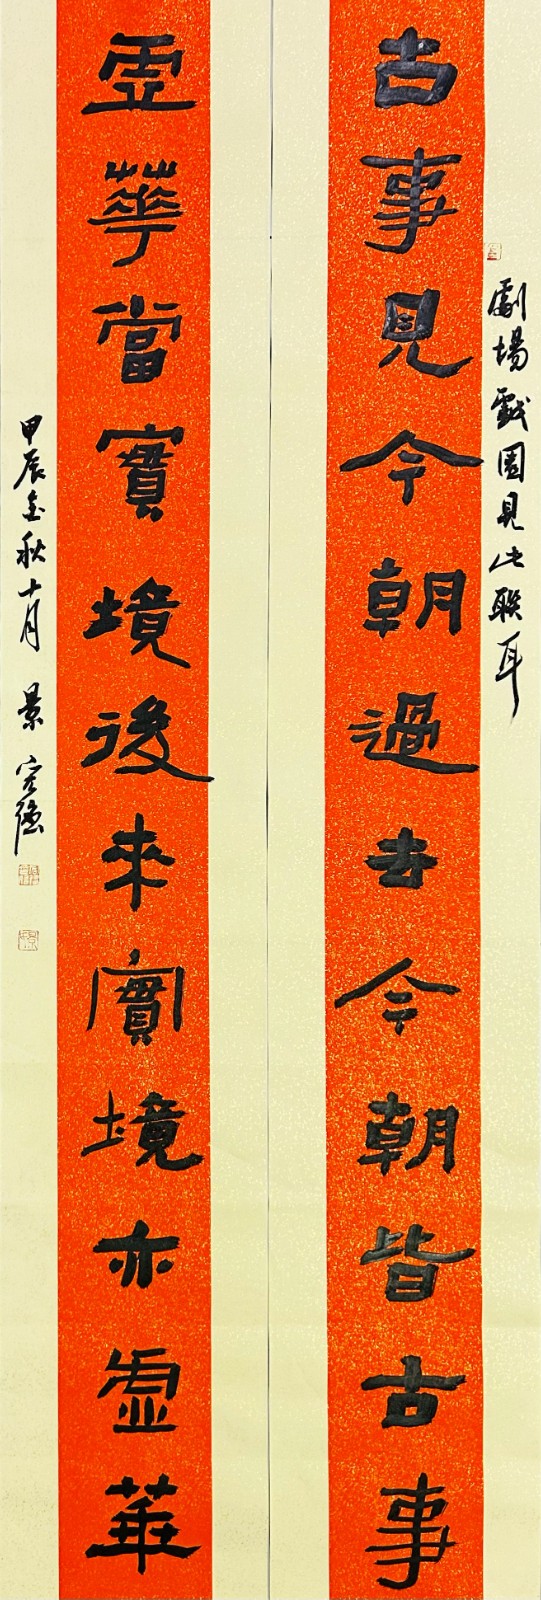 劇場戲園見此聯耳
古事見今朝過去今朝皆古事
虛華當實境後來實境亦虛華
甲辰金秋十月 景宏強